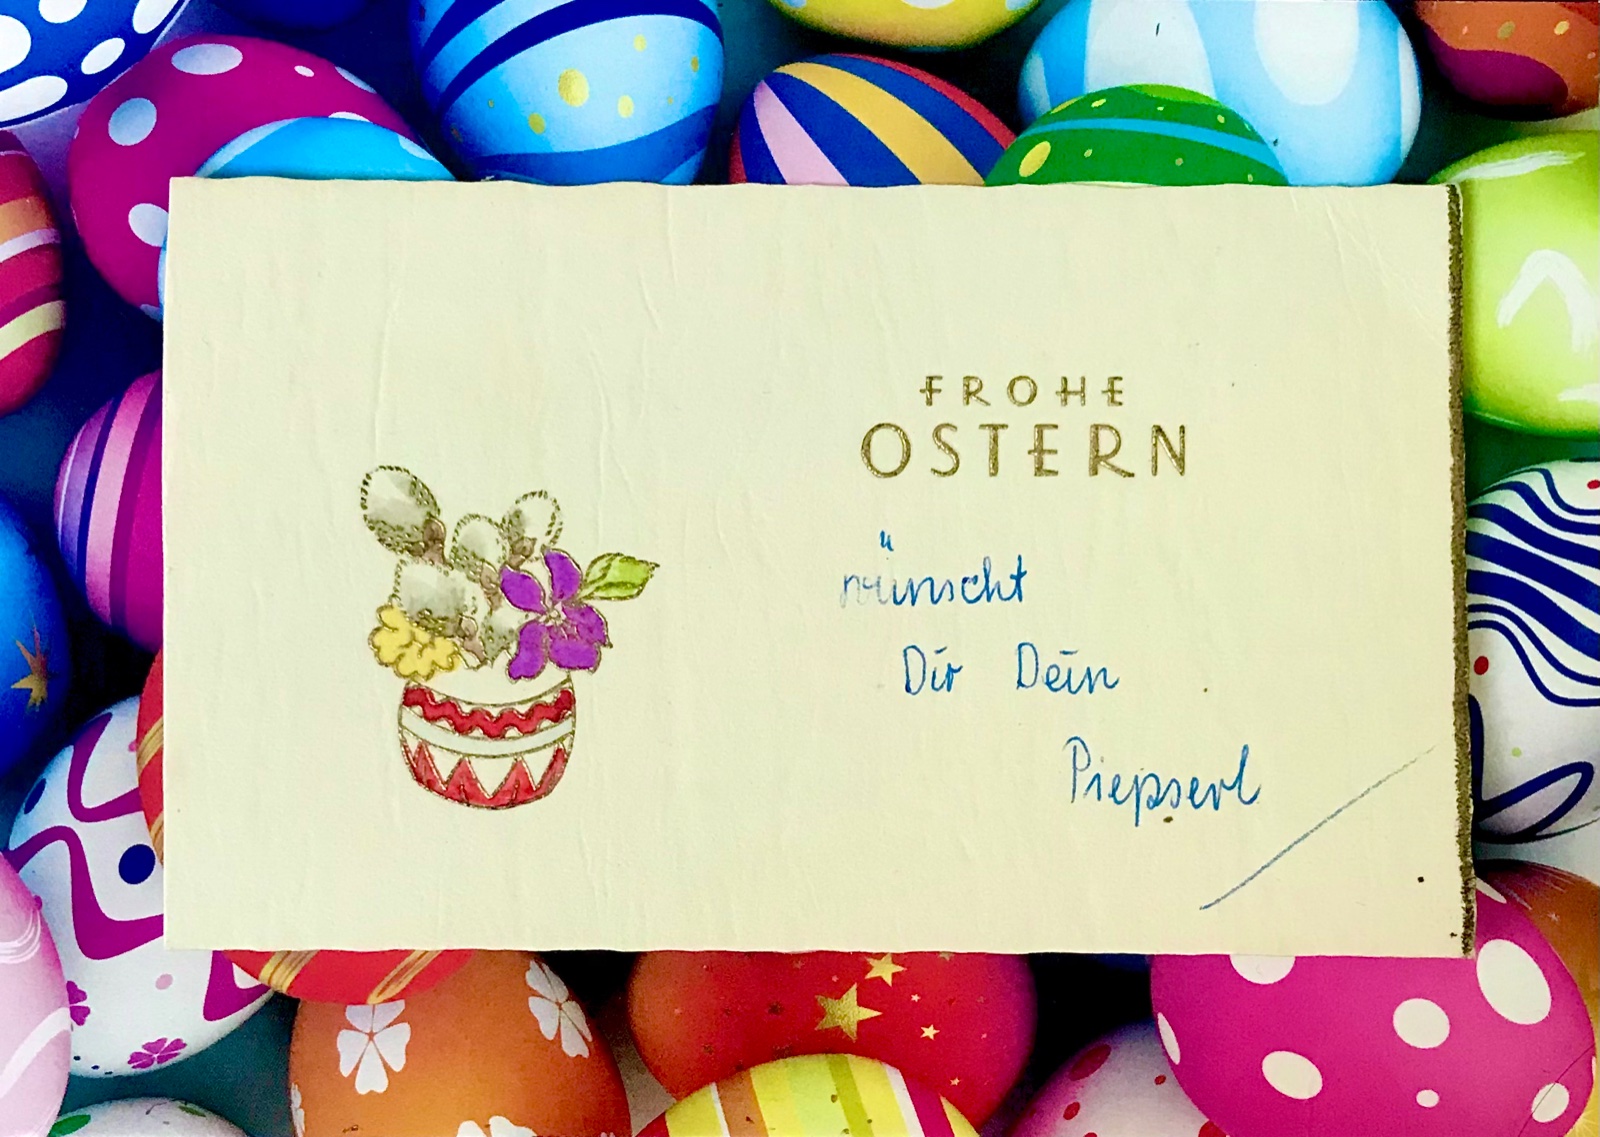 FROHE
OSTERN
wünscht
Dir Dein
Piepserl